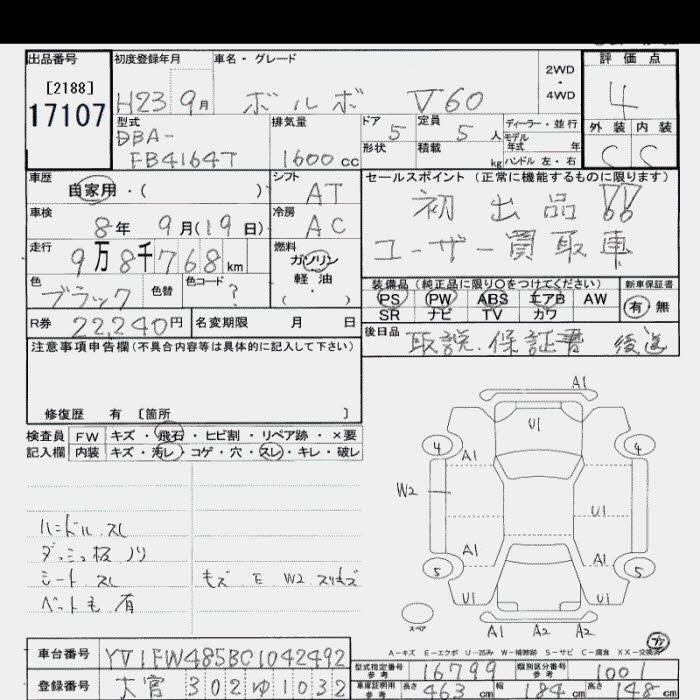 出品番号
[2188]
17107
初度登録年月
H23 9月
車名・グレード
ボルボ V60
2WD
・
4WD
評価点
4
型式
DBA-
FB4164T
排気量
1600cc
ドア
5
形状
定員
5人
積載
kg
ディーラー・並行
モデル
年式 年
ハンドル 左・右
外装 内装
C C
車歴
自家用・( )
シフト
AT
車検
8年 9月(19日)
冷房
AC
走行
9万8千768km
燃料
ガソリン
軽油
( )
色
ブラック
色替
色コード
?
R券 22,240円
名変期限 月 日
セールスポイント (正常に機能するものに限ります)
初出品!!
ユーザー買取車
装備品(純正品に限り○をつけてください)
PS PW ABS エアB AW
SR ナビ TV カワ
新車保証書
有 無
後日品
取説.保証書 後送
注意事項申告欄(不具合内容等は具体的に記入して下さい)
修復歴 有 [箇所 ]
検査員 FW キズ・飛石・ヒビ割・リペア跡・×要
記入欄 内装 キズ・汚レ・コゲ・穴・スレ・キレ・破レ
ハンドル スレ
ダッシュ板 ノリ
シート スレ
ペット毛 有
キズ E W2 スリキズ
A1
U1
4 A1 4
W2
U1
A1 A1
5 5
U1 U1
A1 A2 A2
スペア
A-キズ E-エクボ U-凹み W-補修跡 S-サビ C-腐食 XX-交換済
車台番号 YV1FW485BC1042492
登録番号 大宮 302 ゆ 1032
型式指定番号
参考
16799
類別区分番号
参考
1001
車庫証明用
参考
長さ 463cm 幅 184cm 高さ 148cm